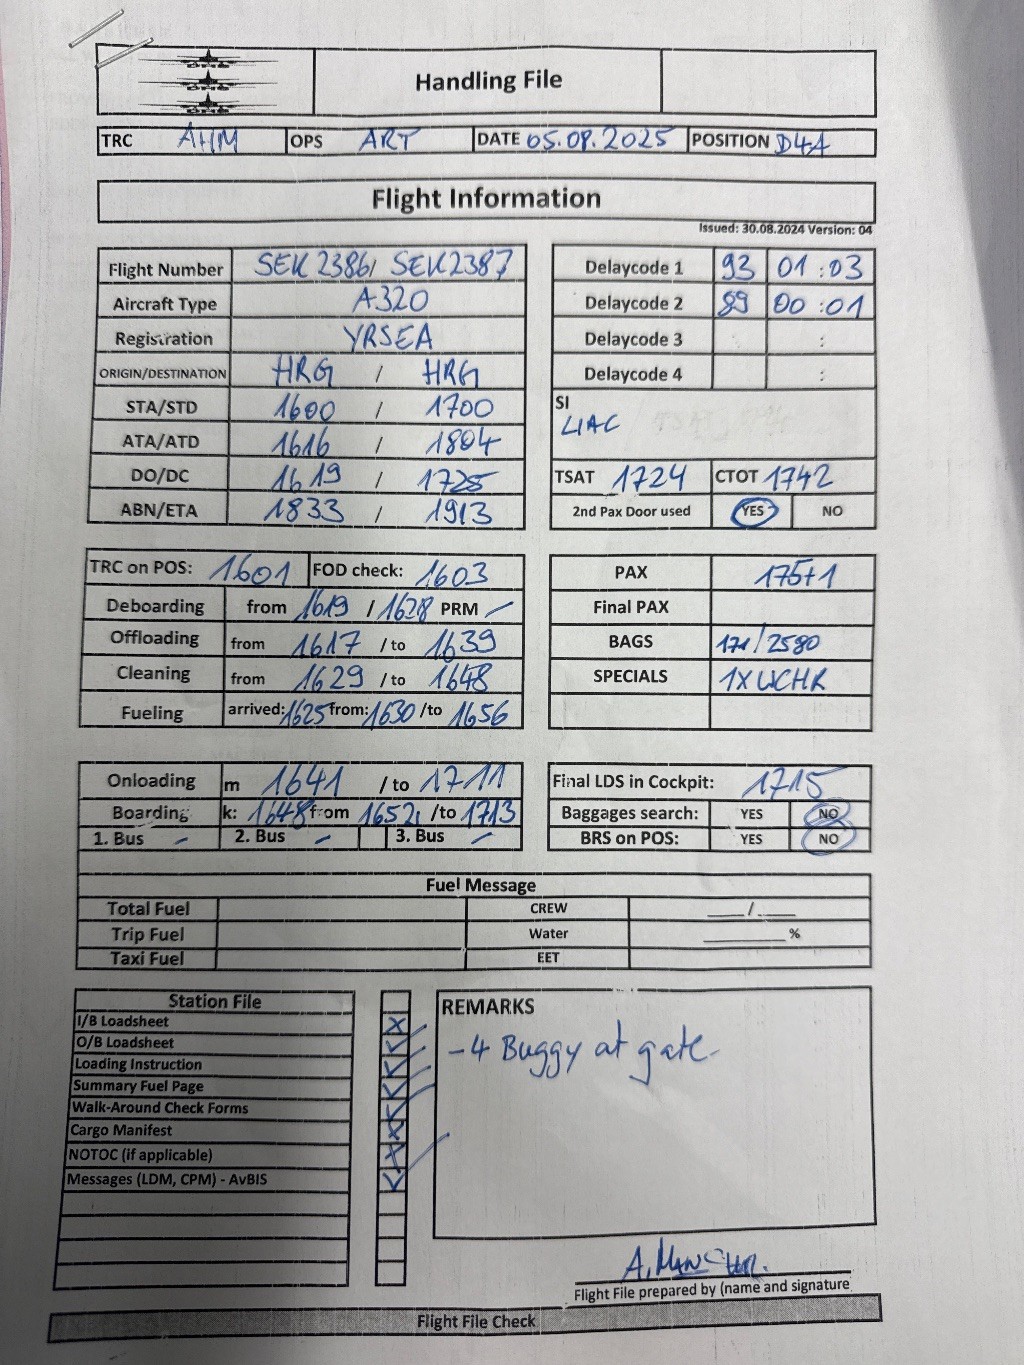 Handling File
TRC AHM OPS ART DATE 05.08.2025 POSITION D4A
Flight Information
Issued: 30.08.2024 Version: 04
Flight Number SEK 2386/ SEK2387
Aircraft Type A320
Registration YRSEA
ORIGIN/DESTINATION HRG / HRG
STA/STD 1600 / 1700
ATA/ATD 1616 / 1804
DO/DC 1619 / 1725
ABN/ETA 1833 / 1913
Delaycode 1 93 01:03
Delaycode 2 89 00:01
Delaycode 3 :
Delaycode 4 :
SI
LIAC
TSAT 1724 CTOT 1742
2nd Pax Door used YES NO
TRC on POS: 1601 FOD check: 1603
Deboarding from 1619 / 1628 PRM –
Offloading from 1617 / to 1639
Cleaning from 1629 / to 1648
Fueling arrived: 1625 from: 1630 / to 1656
PAX 175+1
Final PAX
BAGS 171/2580
SPECIALS 1X WCHR
Onloading m 1641 / to 1711
Boarding k: 1648 from 1652 / to 1713
1. Bus – 2. Bus – 3. Bus –
Final LDS in Cockpit: 1715
Baggages search: YES NO
BRS on POS: YES NO
Fuel Message
Total Fuel CREW ___/___
Trip Fuel Water ________%
Taxi Fuel EET
Station File
I/B Loadsheet X
O/B Loadsheet ✓
Loading Instruction ✓
Summary Fuel Page ✓
Walk-Around Check Forms ✓
Cargo Manifest X
NOTOC (if applicable) X
Messages (LDM, CPM) - AvBIS ✓
REMARKS
- 4 Buggy at gate-
Flight File prepared by (name and signature
Flight File Check